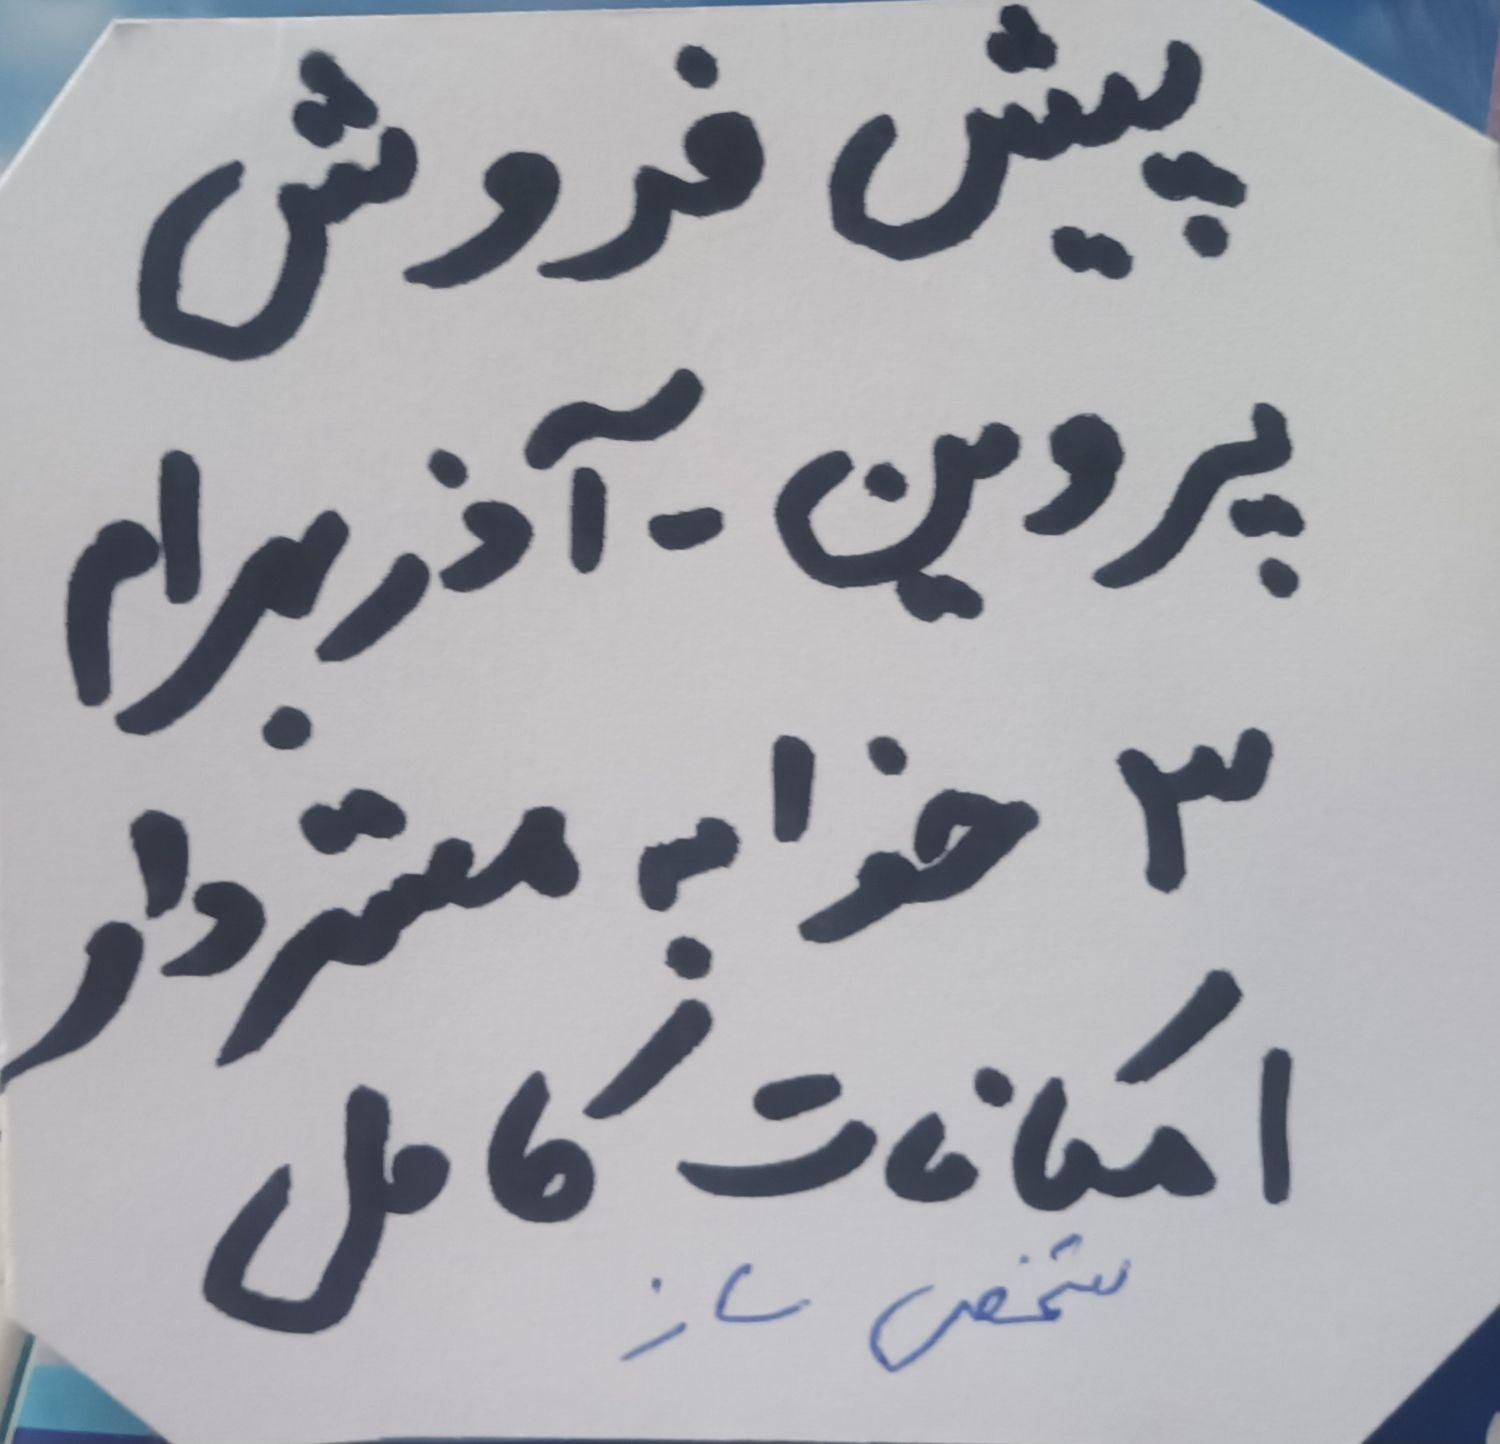 پیش فروش
پروین - آذر بهرام
۳ خوابه مستردار
امکانات کامل
شخصی ساز